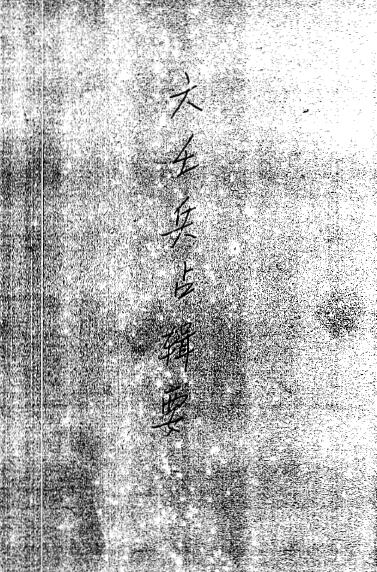 六壬兵占辑要